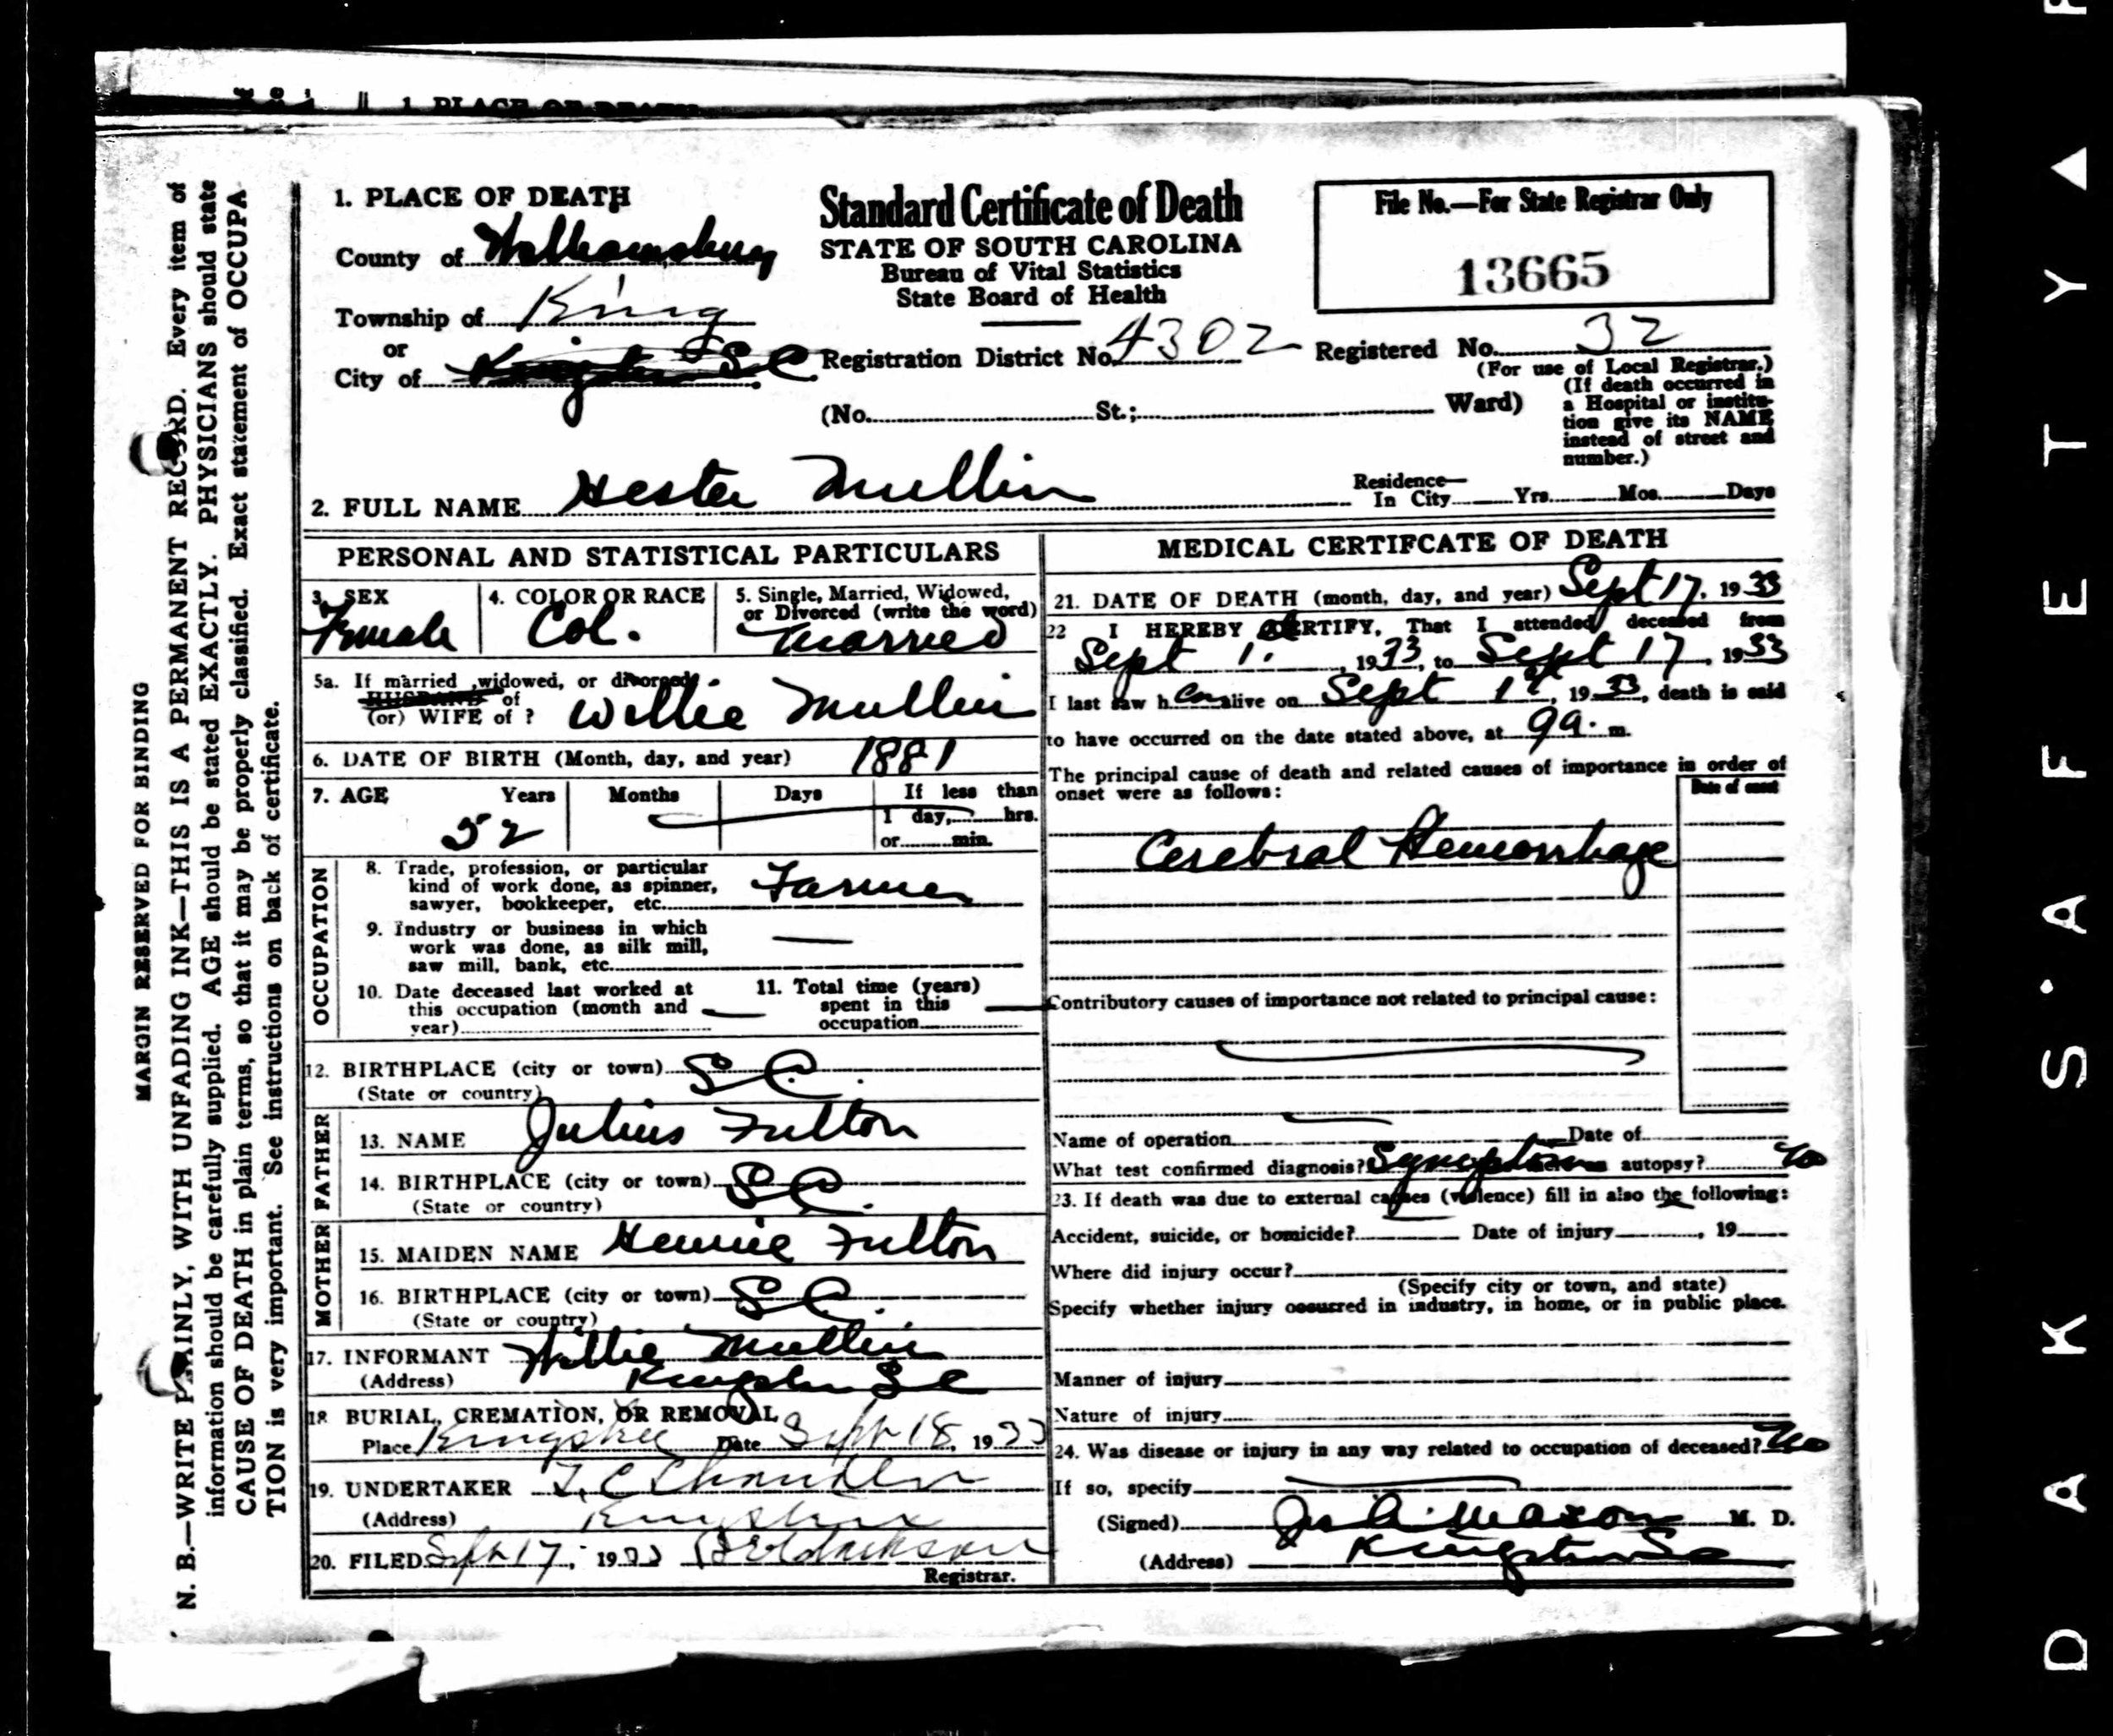 1. PLACE OF DEATH
County of Williamsburg
Township of King
or
City of Kingstree S C
Standard Certificate of Death
STATE OF SOUTH CAROLINA
Bureau of Vital Statistics
State Board of Health
File No.—For State Registrar Only
13665
Registration District No. 4302
Registered No. 32
(For use of Local Registrar.)
(No. St.; Ward)
(If death occurred in
a Hospital or institu-
tion give its NAME
instead of street and
number.)
2. FULL NAME Hester Mullin
Residence—
In City Yrs. Mos. Days
PERSONAL AND STATISTICAL PARTICULARS
3. SEX
Female
4. COLOR OR RACE
Col.
5. Single, Married, Widowed,
or Divorced (write the word)
Married
5a. If married, widowed, or divorced
HUSBAND of
(or) WIFE of ? Willie Mullin
6. DATE OF BIRTH (Month, day, and year) 1881
7. AGE Years Months Days If less than
1 day, hrs.
52
or min.
OCCUPATION
8. Trade, profession, or particular
kind of work done, as spinner,
sawyer, bookkeeper, etc. Farmer
9. Industry or business in which
work was done, as silk mill,
saw mill, bank, etc. —
10. Date deceased last worked at
this occupation (month and
year) —
11. Total time (years)
spent in this
occupation —
12. BIRTHPLACE (city or town) S C.
(State or country)
FATHER
13. NAME Julius Fulton
14. BIRTHPLACE (city or town) S C.
(State or country)
MOTHER
15. MAIDEN NAME Hennie Fulton
16. BIRTHPLACE (city or town) S C.
(State or country)
17. INFORMANT Willie Mullin
(Address) Kingstree S C
18. BURIAL, CREMATION, OR REMOVAL
Place Kingstree Date Sept 18, 1933
19. UNDERTAKER T. C Chandler
(Address) Kingstree
20. FILED Sept 17, 1933 Jackson
Registrar.
MEDICAL CERTIFCATE OF DEATH
21. DATE OF DEATH (month, day, and year) Sept 17, 1933
22 I HEREBY CERTIFY, That I attended deceased from
Sept 1., 1933, to Sept 17, 1933
I last saw her alive on Sept 1, 1933, death is said
to have occurred on the date stated above, at 9 a. m.
The principal cause of death and related causes of importance in order of
onset were as follows:
Date of onset
Cerebral Hemorrhage
Contributory causes of importance not related to principal cause:
Name of operation Date of
What test confirmed diagnosis? Symptoms autopsy? No
23. If death was due to external causes (violence) fill in also the following:
Accident, suicide, or homicide? Date of injury , 19
Where did injury occur?
(Specify city or town, and state)
Specify whether injury occurred in industry, in home, or in public place.
Manner of injury
Nature of injury
24. Was disease or injury in any way related to occupation of deceased? No
If so, specify
(Signed) Mason M. D.
(Address) Kingstree S C
MARGIN RESERVED FOR BINDING
N. B.—WRITE PLAINLY, WITH UNFADING INK—THIS IS A PERMANENT RECORD. Every item of
information should be carefully supplied. AGE should be stated EXACTLY. PHYSICIANS should state
CAUSE OF DEATH in plain terms, so that it may be properly classified. Exact statement of OCCUPA-
TION is very important. See instructions on back of certificate.
1 PLACE OF DEATH
D A K S • A F E T Y ▲